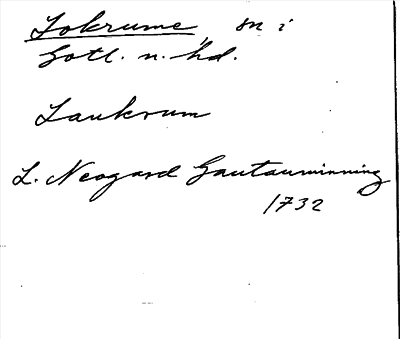 Lokrume, sn i
Gotl. n. hd.
Laukrum
L. Neogard Gautauminning
1732